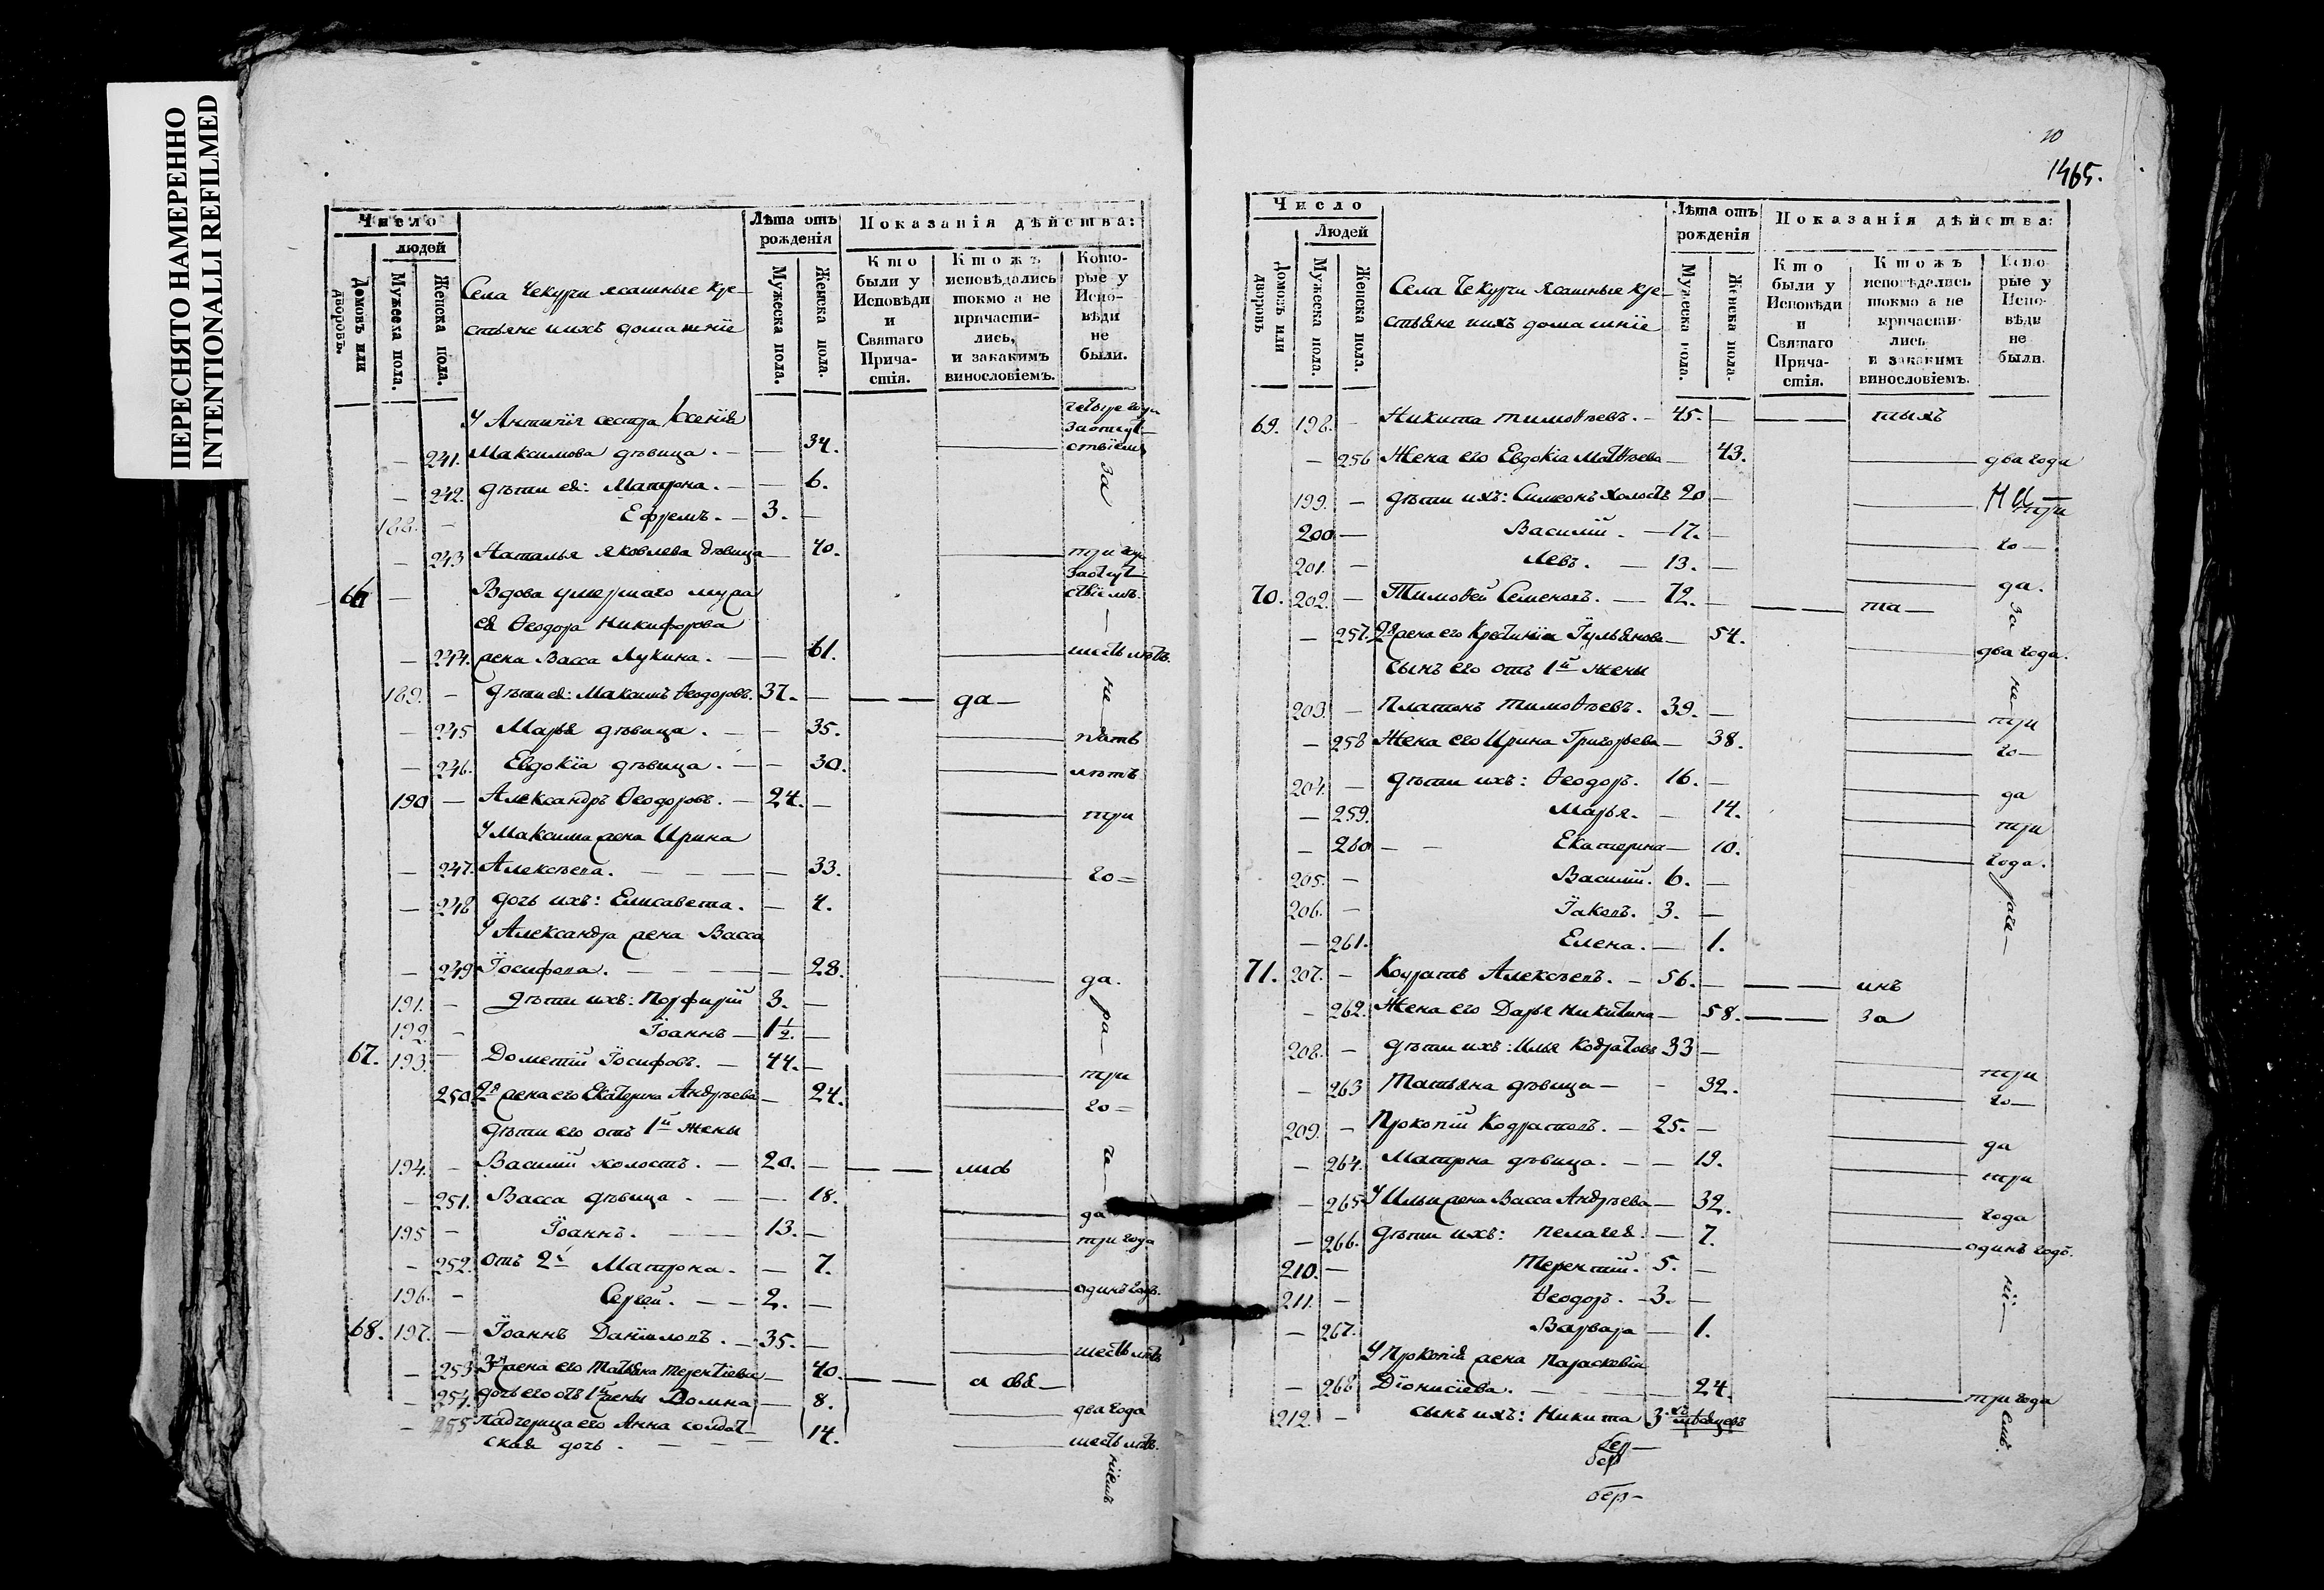 ПЕРЕСНЯТО НАМЕРЕННО
INTENTIONALLI REFILMED
Число
людей
Домовъ или дворовъ.
Мужеска пола.
Женска пола.
Села Чекурчи ясашные кре-
стьяне и ихъ домашнїе
Лѣта отъ рожденія
Мужеска пола.
Женска пола.
Показанія дѣйства:
Кто были у Исповѣди и Святаго Прича-стія.
Ктожъ исповѣдались токмо а не причасти-лись, и закакимъ винословіемъ.
Кото-рые у Испо-вѣди не были.
У сестра Ксенїя
241. Максимова дѣвица. — 34.
242. дѣти ея: Матрона. — 6.
188. Ефремъ. — 3.
243 Наталья Яковлева дѣвица — 40.
Вдова умершаго мужа
ея Ѳеодора Никифорова
244. жена Васса Лукина. — 61. шесть лѣтъ.
189. дѣти ея: Максимъ Ѳеодоровъ. 37. — да —
245 Марья дѣвица. — 35. пять
246. Евдокїа дѣвица. — 30. лѣтъ
190 Александръ Ѳеодоровъ. — 24. три
У Максима жена Ирина
247. Алексѣева. — 33. го =
248 дочь ихъ: Елисавета. — 4.
У Александра жена Васса
249 Їосифова. — 28. да.
191. дѣти ихъ: Порфирїй 3.
192. Їоаннъ — 1½.
67. 193. Дометїй Їосифовъ. — 44. три
250 2я жена его Екатерина Андрѣева — 24. го =
дѣти его отъ 1й жены
194. Василїй холостъ. — 20.
251. Васса дѣвица. — 18. да
195 Їоаннъ. — 13. три года
252. отъ 2й Матрона. — 7.
196. Сергей. — 2. одинъ годъ.
68. 197. Їоаннъ Данїиловъ. — 35. шесть лѣтъ
253 3я жена его Татьяна Терентїева — 40.
254. дочь его отъ 1й жены Домна — 8. два года
255 Падчерица его Анна солдат-
ская дочь. — 14. шесть лѣтъ.
20
1465.
Число
Людей
Домовъ или дворовъ
Мужеска пола.
Женска пола.
Села Чекурчи ясашные кре-
стьяне и ихъ домашнїе
Лѣта отъ рожденія
Мужеска пола.
Женска пола.
Показанія дѣйства:
Кто были у Исповѣди и Святаго Прича-стія.
Ктожъ исповѣдались токмо а не причасти-лись и закакимъ винословіемъ.
Кото-рые у Испо-вѣди не были.
69. 198. Никита Тимоѳѣевъ. — 45.
256 Жена его Евдокїа Матвѣева — 43. два года
199. дѣти ихъ: Симеонъ холостъ 20 три
200 Василїй. — 17. го —
201. Левъ. — 13. да.
70. 202. Тимоѳей Семеновъ. — 72. — та —
257. 2я жена его Їульянова — 54. два года.
сынъ его отъ 1й жены
203. Платонъ Тимоѳѣевъ. 39. три
258 Жена его Ирина Григорьева — 38. го —
204. дѣти ихъ: Ѳеодоръ. 16. да
259. Марья. — 14. три
260 Екатерина — 10. года.
205. Василїй. 6.
206. Їаковъ. 3.
261. Елена. — 1.
71. 207. Алексѣевъ. — 56. — инъ
262. Жена его Дарья Никитина — 58. — за
208. дѣти ихъ: Илья Кодратовъ 33 три
263 Татьяна дѣвица — 32. го —
209. Прокопїй Кодратовъ. — 25. да
264. Матрона дѣвица. — 19. три
265 У Ильи жена Васса Андрѣева — 32. года
266. дѣти ихъ: Пелагея. — 7. одинъ годъ.
210. Терентїй. 5.
211. Ѳеодоръ. — 3.
267. Варвара — 1.
У Прокопїя жена Параскевїа
268 Дїонисїева. — 24. три года
212. сынъ ихъ: Никита 3.хъ мѣсяцевъ